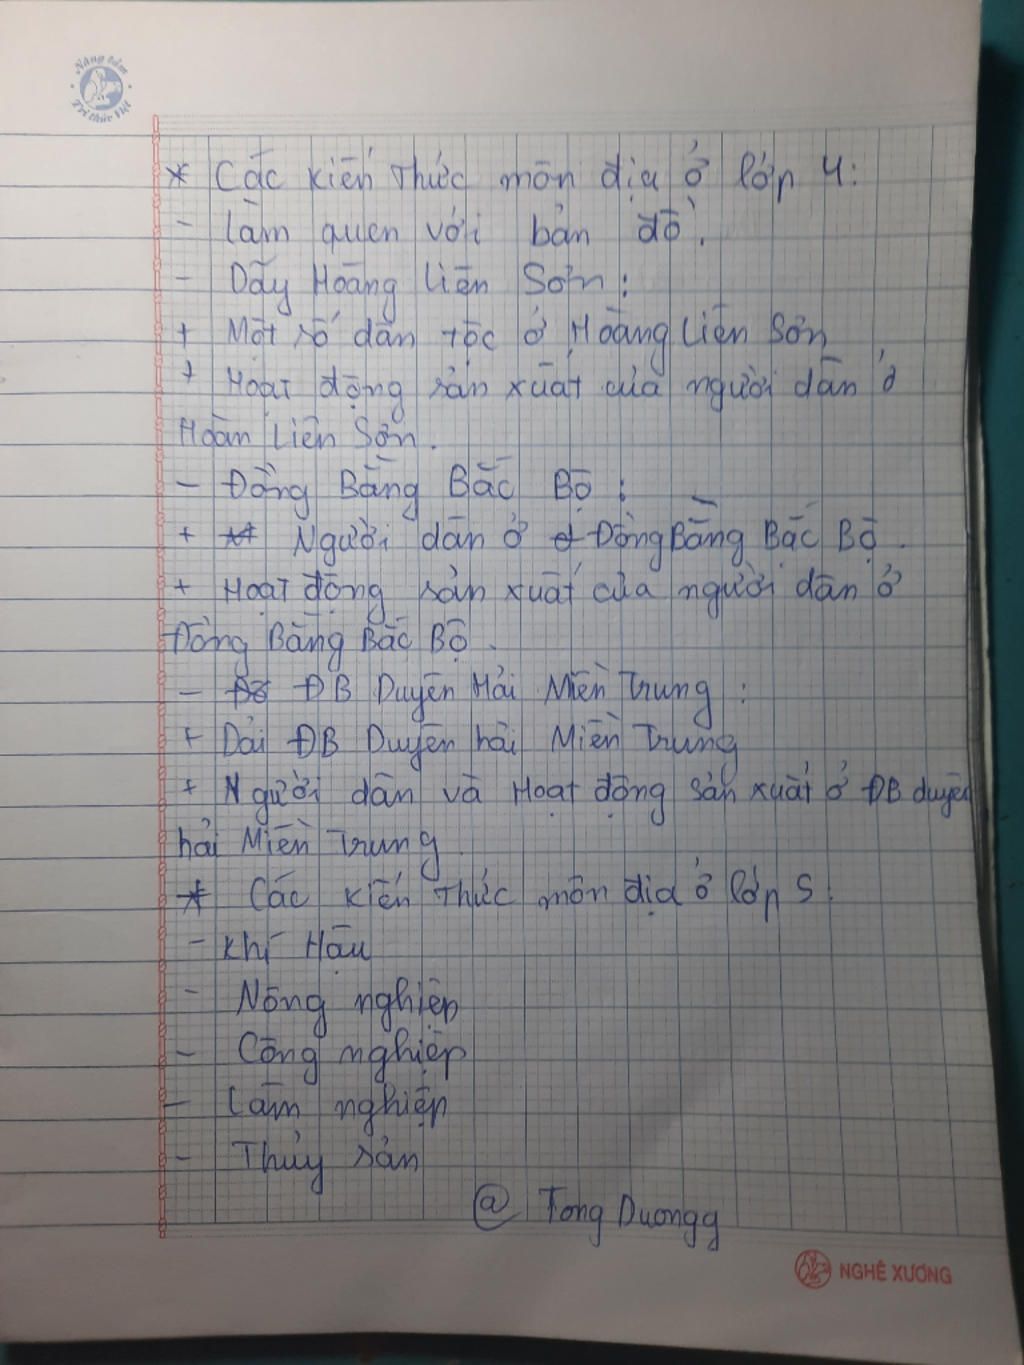 Nâng tầm
Tri thức Việt
* Các kiến thức môn địa ở lớp 4:
- Làm quen với bản đồ.
- Dãy Hoàng Liên Sơn:
+ Một số dân tộc ở Hoàng Liên Sơn
+ Hoạt động sản xuất của người dân ở
Hoàn Liên Sơn.
- Đồng Bằng Bắc Bộ:
+ Người dân ở Đồng Bằng Bắc Bộ.
+ Hoạt động sản xuất của người dân ở
Đồng Bằng Bắc Bộ.
- ĐB Duyên Hải Miền Trung:
+ Dải ĐB Duyên hải Miền Trung
+ Người dân và Hoạt động sản xuất ở ĐB duyên
hải Miền Trung.
* Các kiến thức môn địa ở lớp 5:
- Khí Hậu
- Nông nghiệp
- Công nghiệp
- Lâm nghiệp
- Thủy sản
@ Tong Duongg
NGHÊ XƯƠNG